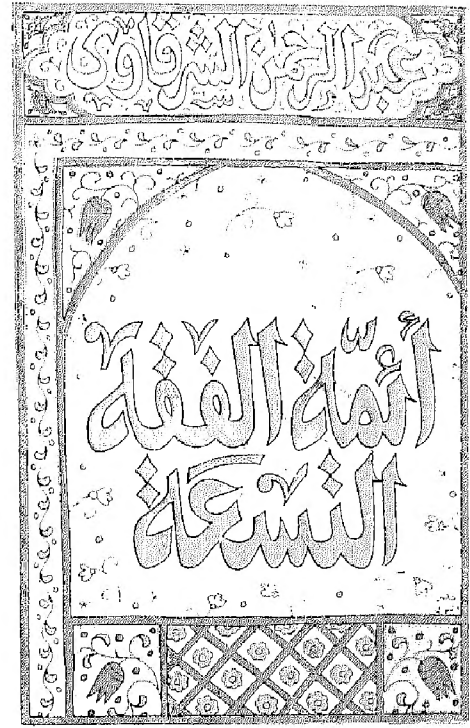 عبد الرحمن الشرقاوى
أئمّة الفقه
التسعة